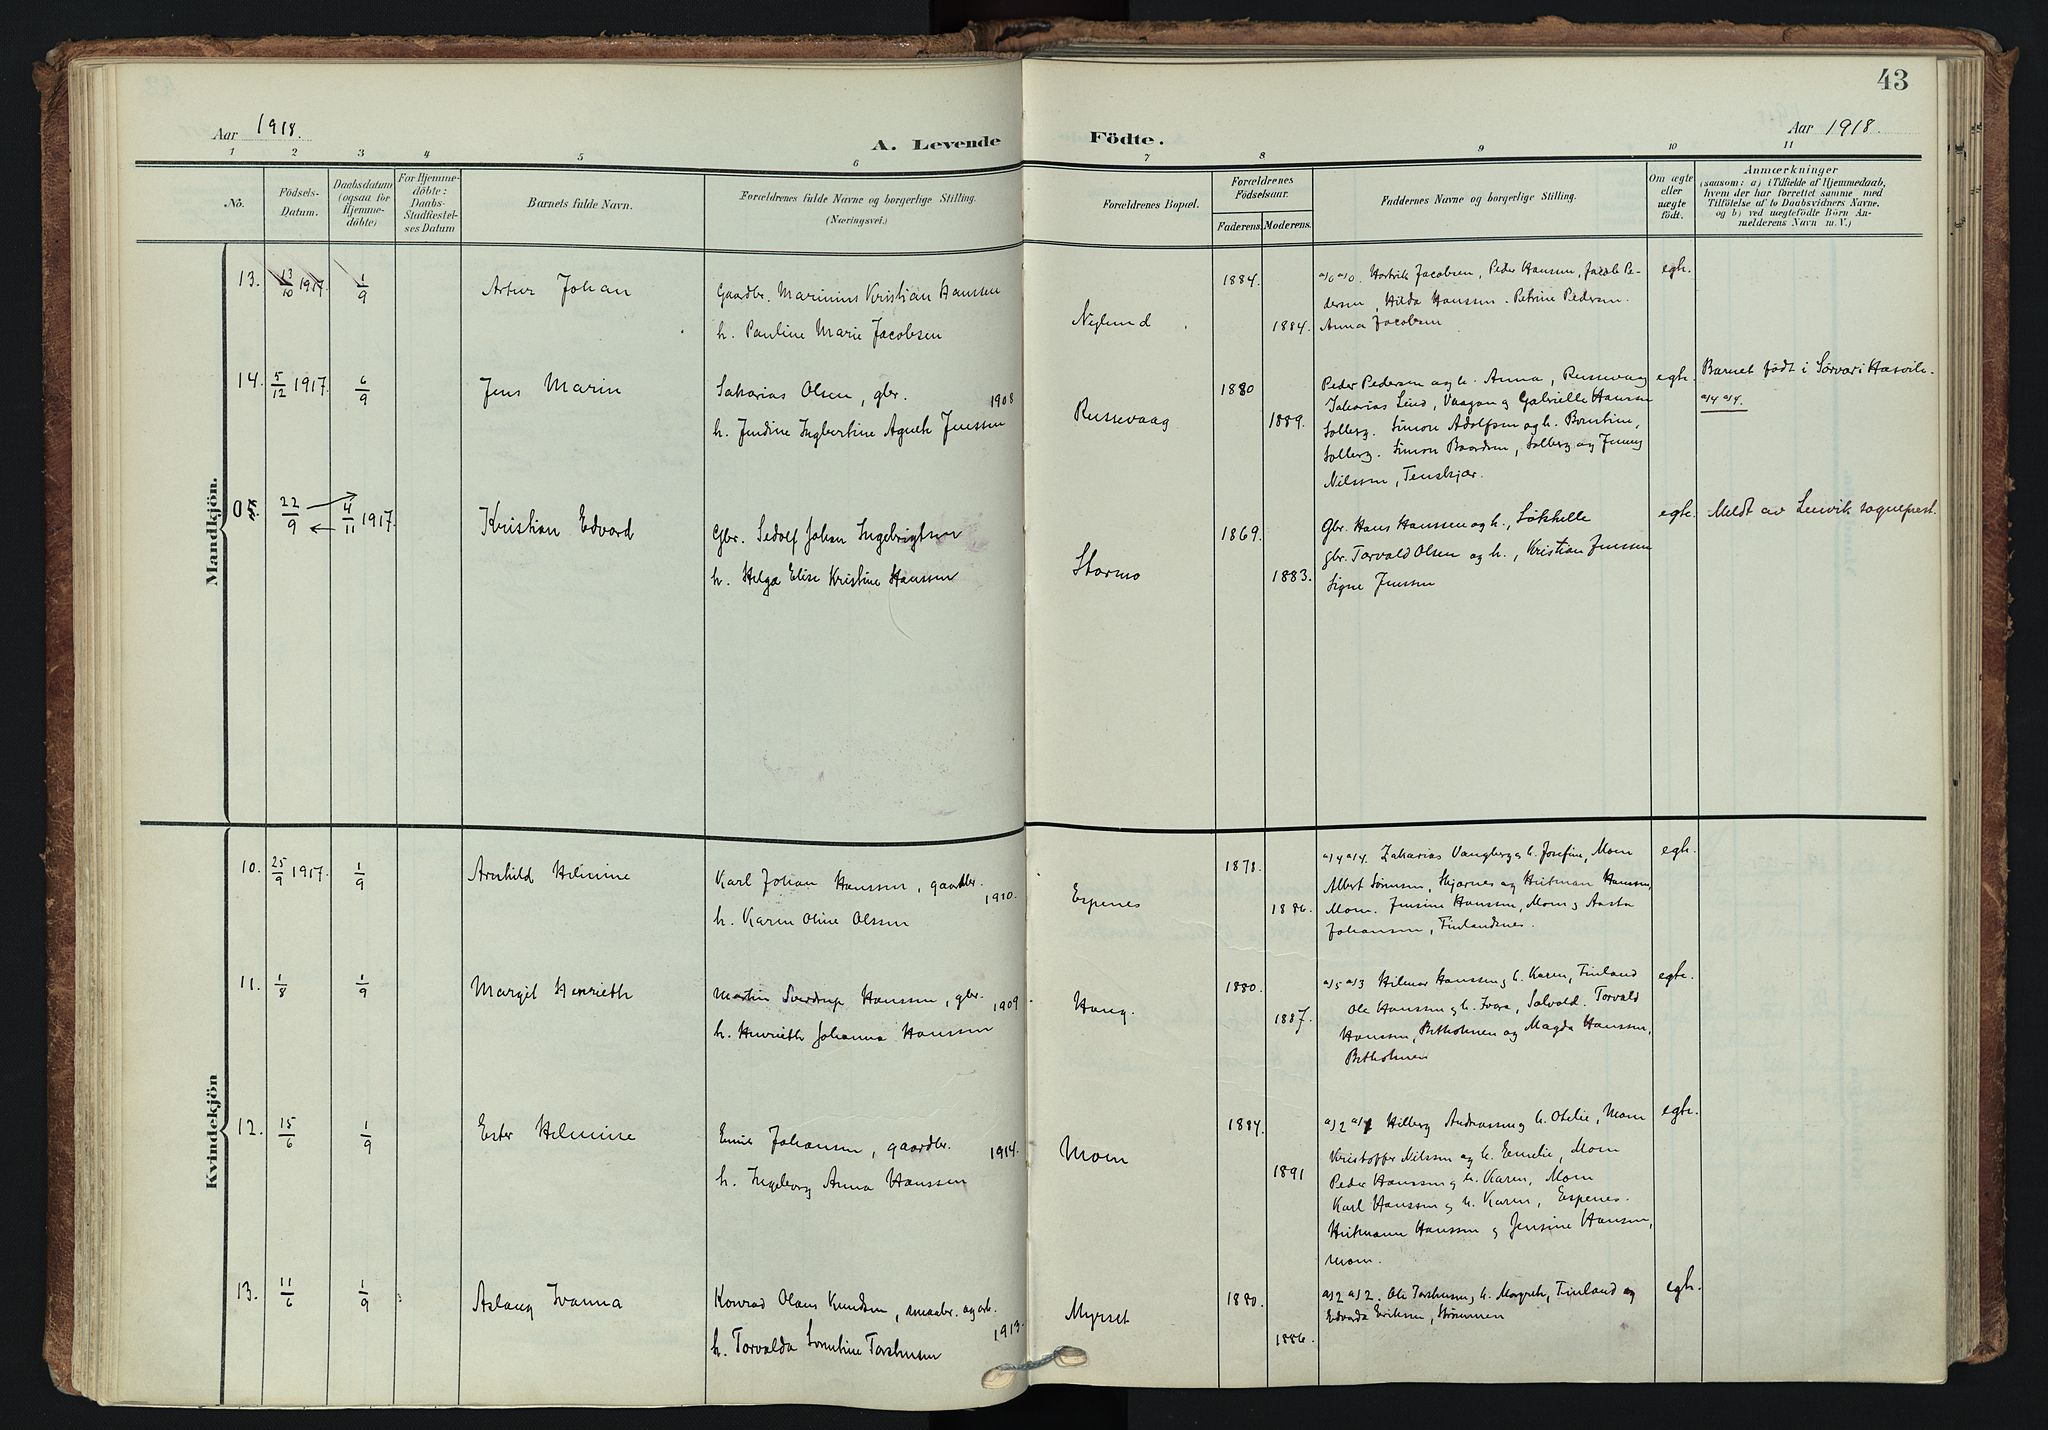 43
Aar 1918.
A. Levende Födte.
Aar 1918.
1 2 3 4 5 6 7 8 9 10 11
No.
Födsels-Datum.
Daabsdatum (ogsaa for Hjemme-döbte)
For Hjemme-döbte: Daabs-Stadfæstel-ses Datum
Barnets fulde Navn.
Forældrenes fulde Navne og borgerlige Stilling.
(Næringsvei.)
Forældrenes Bopæl.
Forældrenes Födselsaar.
Faderens. Moderens.
Faddernes Navne og borgerlige Stilling.
Om ægte eller uægte födt.
Anmærkninger
(saasom: a) i Tilfælde af Hjemmedaab,
hvem der har forrettet samme med
Tilföielse af to Daabsvidners Navne,
og b) ved uægtefödte Börn An-
melderens Navn m. V.)
Mandkjön.
13. 13/10 1917. 1/9 Artur Johan
Gaardbr. Marinius Kristian Hanssen
h. Pauline Marie Jacobsen
Neglund 1884. 1884.
Hartvik Jacobsen, Peder Hansen, Jacob Pe-
dersen, Hilda Hanssen. Petrine Pedersen.
Anna Jacobsen
egt.
14. 5/12 1917. 6/9 Jens Marin
Sakarias Olsen, gbr. 1908
h. Jendine Ingbertine Agneth Jenssen
Russevaag 1880 1889.
Peder Pedersen og h. Anna, Russevaag
Sakarias Lind, Vaagan og Gabrielle Hansen
Solberg. Simon Adolfsen og h. Berntine,
Solberg. Simon Baardsen, Solberg og Jenny
Nilssen, Tenskjær.
egte.
Barnet födt i Sørvær i Hasvik.
a/4 a/4.
05. 22/9 4/11 1917. Kristian Edvard
Gbr. Sedolf Johan Ingebrigtsen
h. Helga Elise Kristine Hanssen
Stormo 1869. 1883.
Gbr. Hans Hanssen og h., Løkhelle
gbr. Torvald Olsen og h., Kristian Jenssen
Signe Jenssen
egte.
Meldt av Lenvik sogneprest.
Kvindekjön
10. 25/9 1917. 1/9 Arnhild Helmine
Karl Johan Hanssen, gaardbr. 1910.
h. Karen Oline Olssen
Espenes 1878. 1886.
a/4 a/4. Zakarias Vangberg og h. Josefine, Moen
Albert Sørensen, Skjærnes og Hilman Hanssen,
Moen. Jensine Hanssen, Moen og Aasta
Johansen, Finlandsnes.
egte.
11. 1/8 1/9 Margit Henrieth
Martin Sverdrup Hanssen, gbr. 1909
h. Henrieth Johanna Hanssen
Haug. 1880. 1887.
a/5 a/3 Hilmar Hanssen og h. Karen, Finland
Ole Hanssen og h. Ivara, Solvold. Torvald
Hanssen, Betholmen og Magda Hanssen,
Betholmen
egte.
12. 15/6 1/9 Ester Helmine
Emil Johansen, gaardbr. 1914.
h. Ingeborg Anna Hanssen
Moen 1884. 1891
a/2 a/1 Hilberg Andreassen og h. Otelie, Moen
Kristoffer Nilssen og h. Emelie, Moen
Peder Hanssen og h. Karen, Moen
Karl Hanssen og h. Karen, Espenes.
Hilmann Hanssen og Jensine Hansen,
Moen.
egte.
13. 11/6 1/9 Aslaug Ivanna
Konrad Olaus Knudsen, smaabr. og arb. 1913.
h. Torvalda Berntine Torstensen
Myrset 1880. 1886.
a/2 a/2. Ole Torstensen og h. Margreth, Finland og
Edvarda Eriksen, Strømmen
egte.